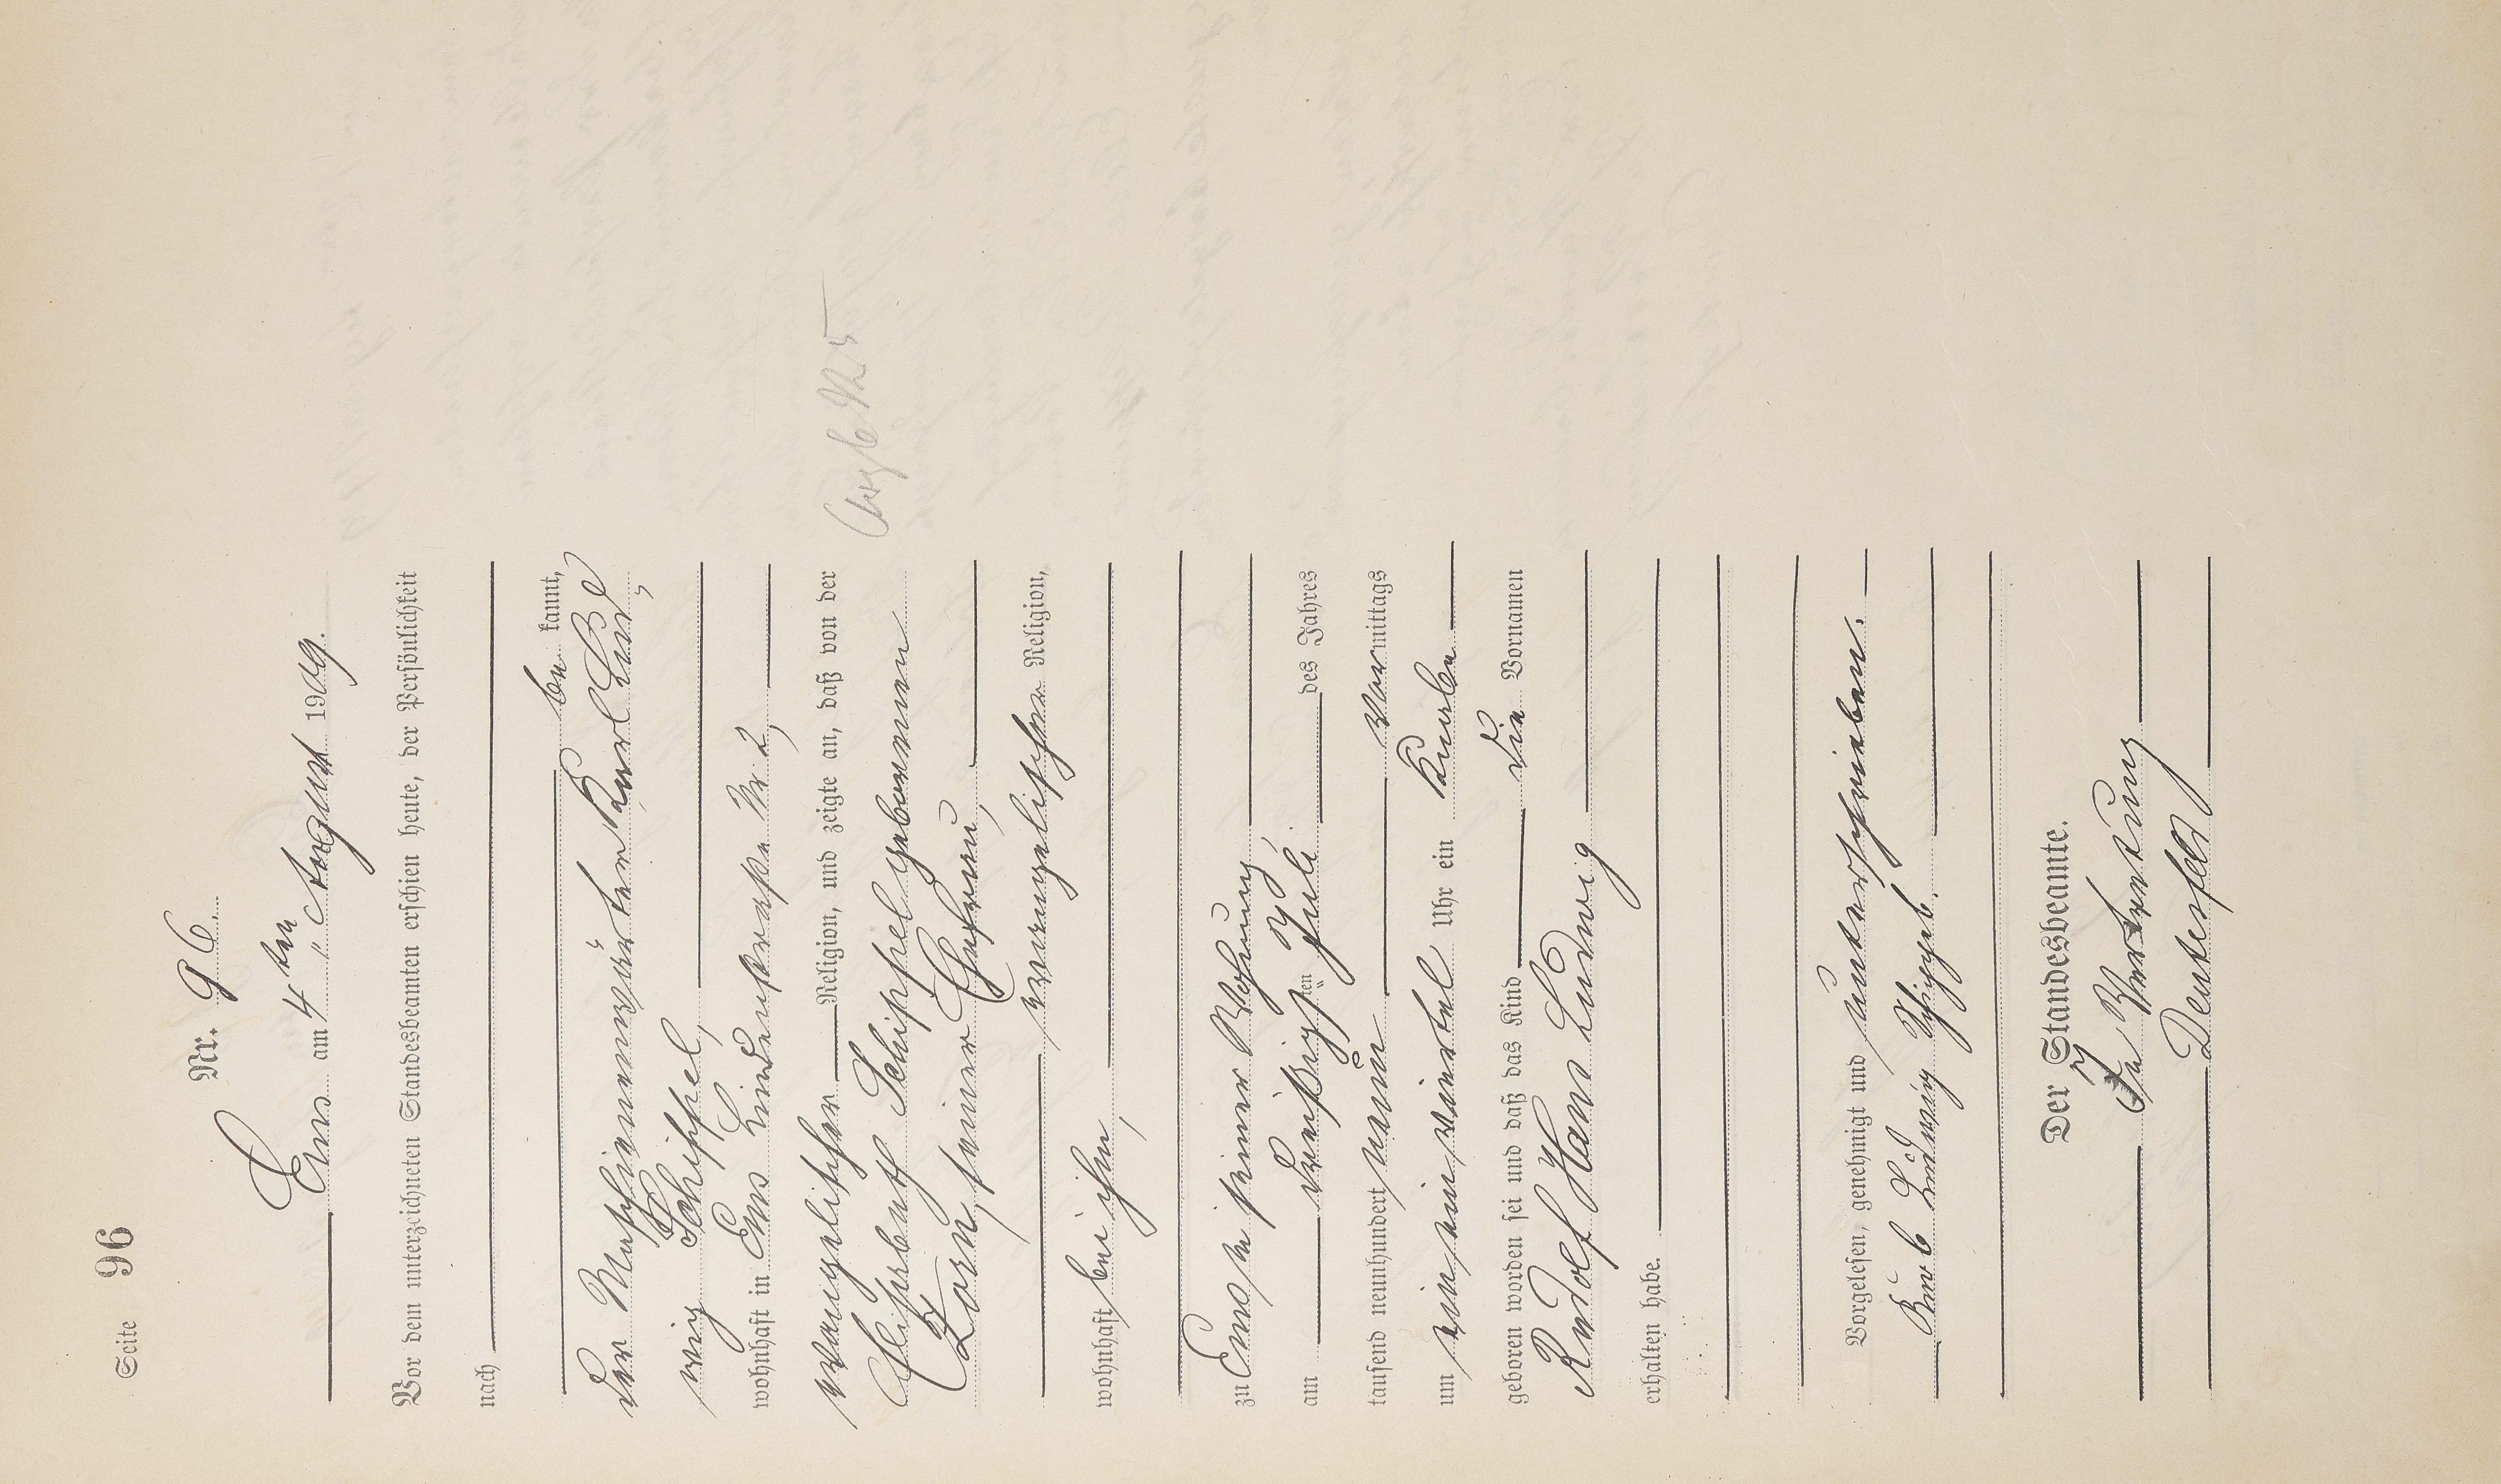 Seite 96
Nr. 96.
Ems am 4ten August 1909.
Vor dem unterzeichneten Standesbeamten erschien heute, der Persönlichkeit
nach
be kannt,
der Maschienenwärter Karl Lud
wig Schippel,
wohnhaft in Ems Lindenstrasse Nr. 2,
evangelischer Religion, und zeigte an, daß von der
Elisabeth Schippel geborenen
Zorn, seiner Ehefrau,
evangelischer Religion,
wohnhaft bei ihm,
zu Ems in seiner Wohnung,
am dreißigsten Juli des Jahres
tausend neunhundert neun Vormittags
um ein ein viertel Uhr ein Knabe
geboren worden sei und daß das Kind die Vornamen
Rudolf Hans Ludwig
erhalten habe.
Vorgelesen, genehmigt und unterschrieben.
Karl Ludwig Schippel.
Der Standesbeamte.
In Vertretung